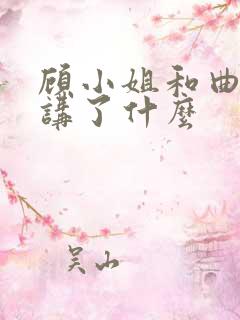 顾小姐和曲
講了什麼
吴山